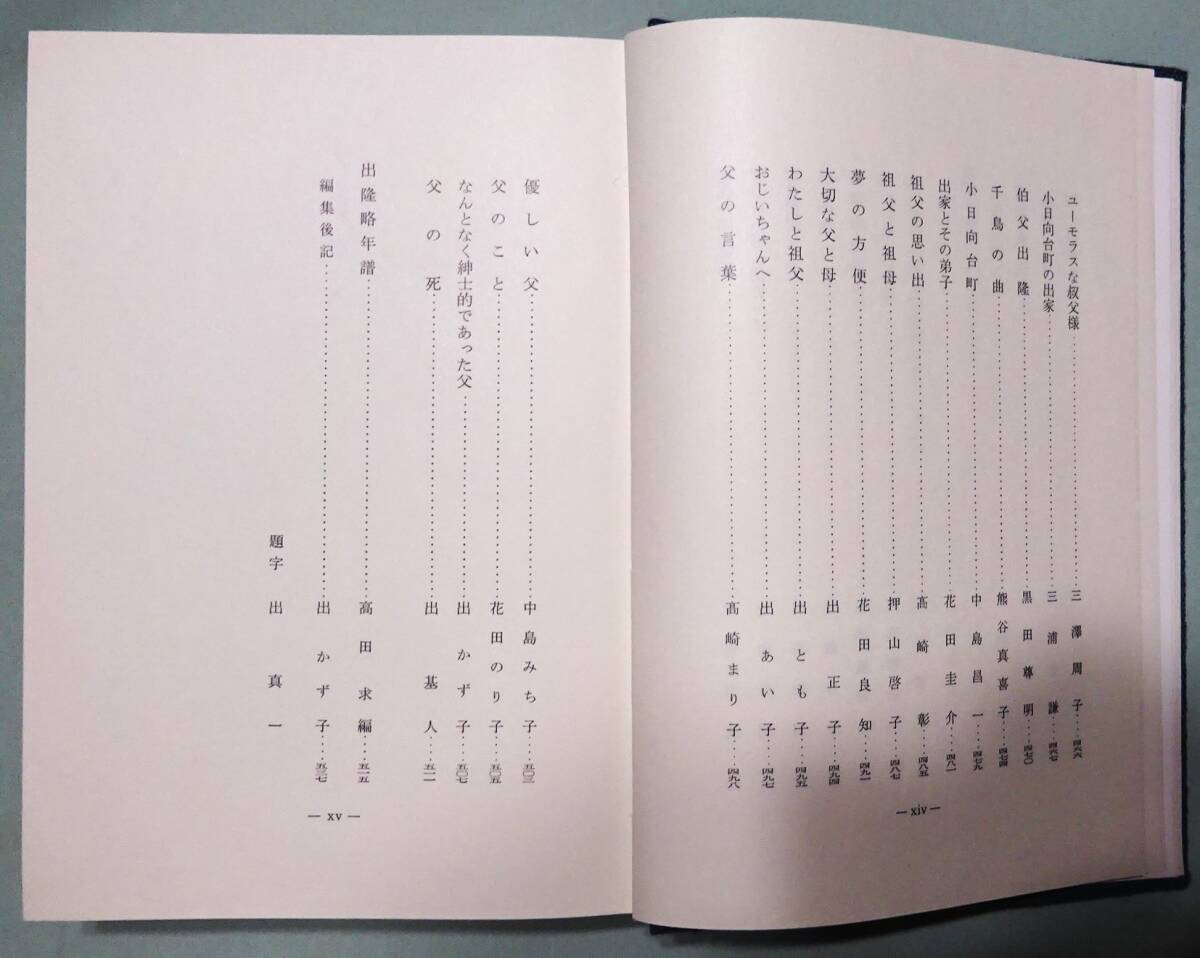 ユーモラスな叔父様‥‥‥三澤周子‥‥四六六
小日向台町の出家‥‥‥三浦謙‥‥四六七
伯父出隆‥‥‥黒田尊明‥‥四七〇
千鳥の曲‥‥‥熊谷真喜子‥‥四七四
小日向台町‥‥‥中島昌一‥‥四七九
出家とその弟子‥‥‥花田圭介‥‥四八一
祖父の思い出‥‥‥高崎彰‥‥四八五
祖父と祖母‥‥‥押山啓子‥‥四八七
夢の方便‥‥‥花田良知‥‥四九一
大切な父と母‥‥‥出正子‥‥四九四
わたしと祖父‥‥‥出とも子‥‥四九五
おじいちゃんへ‥‥‥出あい子‥‥四九七
父の言葉‥‥‥髙崎まり子‥‥四九八
— xiv —
優しい父‥‥‥中島みち子‥‥五〇三
父のこと‥‥‥花田のり子‥‥五〇五
なんとなく紳士的であった父‥‥‥出かず子‥‥五〇七
父の死‥‥‥出基人‥‥五一一
出隆略年譜‥‥‥高田求編‥‥五一五
編集後記‥‥‥出かず子‥‥五三七
題字 出真一
— xv —